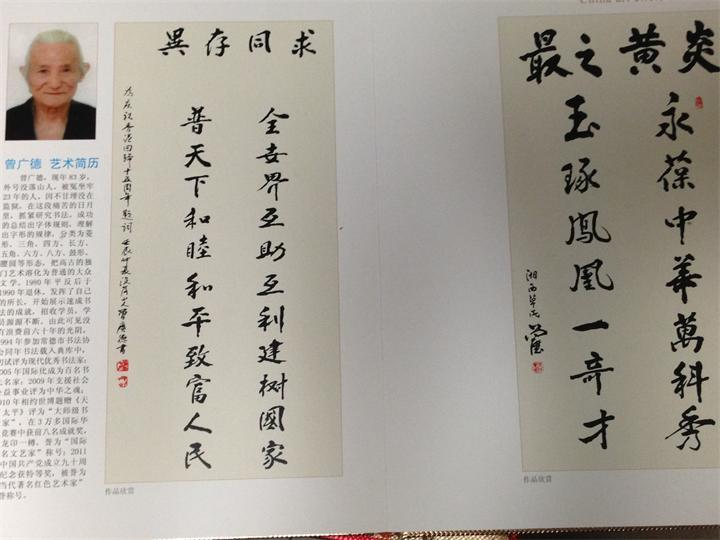 曾广德 艺术简历
曾广德，现年83岁，
外号没落山人，被冤坐牢
23年的人，因不甘埋没在
监狱，在这段痛苦的日月
里，抓紧研究书法，成功
的总结出字体规则，理解
出字形的规律，分类为菱
形、三角、四方、长方、
五角、六方、八方、鼓形、
腰圆等形态，把高古的独
门艺术溶化为普通的大众
文学。1980年平反后于
1990年退休，发挥了自己
的所长，开始展示速成书
法的成就，招收学员，学
员源源不断，由此可见没
有浪费前六十年的光阴，
1994年参加常德市书法协
会同年书法载入典库中，
初试评为现代优秀书法家；
2005年国际优成为百名书
法名家；2009年支援社会
公益事业评为中华之魂；
2010年相约世博题赠《天
下太平》评为“大师级书
家”，在3万多国际华
竞赛中获前八名成就奖，
龙印一樽，誉为“国际
名文艺家”称号；2011
中国共产党成立九十周
纪念获特等奖，被誉为
当代著名红色艺术家”
誉称号。
求同存異
全世界互助互利建树國家
普天下和睦和平致富人民
为庆祝香港回归十五周年题词
作品欣赏
炎黄之最
永葆中华萬科秀
玉琢鳳凰一奇才
作品欣赏